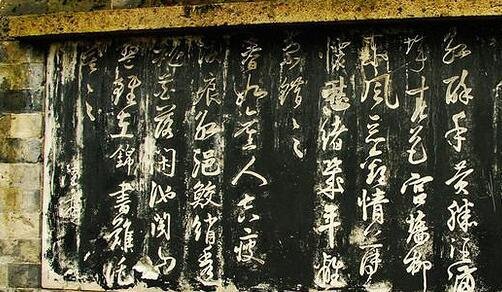 紅酥手黃縢酒滿
城春色宮牆柳
東風惡歡情薄一
懷愁緒幾年離
索錯々々
春如舊人空瘦
淚痕紅浥鮫綃透
桃花落閑池閣山
盟雖在錦書難託
莫々々